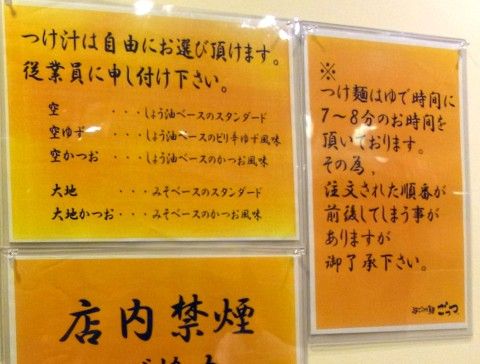 つけ汁は自由にお選び頂けます。
従業員に申し付け下さい。
空 ・・・しょう油ベースのスタンダード
空ゆず ・・・しょう油ベースのピリ辛ゆず風味
空かつお ・・・しょう油ベースのかつお風味
大地 ・・・みそベースのスタンダード
大地かつお・・・みそベースのかつお風味
店内禁煙
※
つけ麺はゆで時間に
7〜8分のお時間を
頂いております。
その為、
注文された順番が
前後してしまう事が
ありますが
御了承下さい。